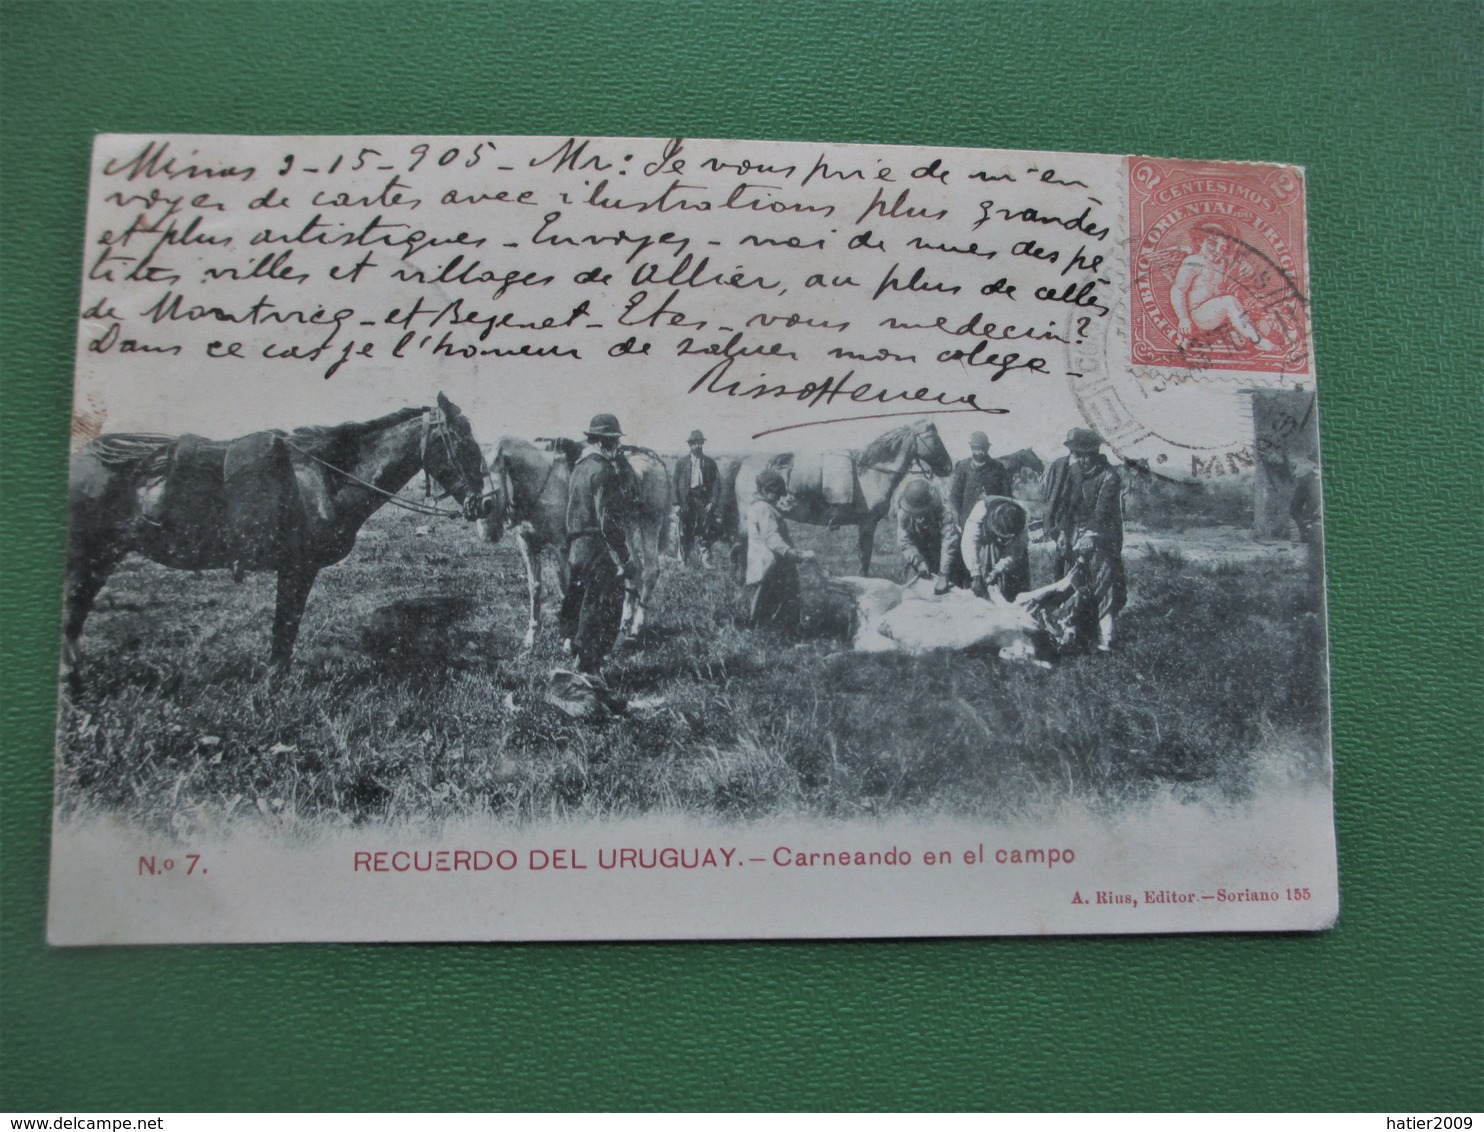 Minas 3-15-905 - Mr: Je vous prie de m'en
voyer de cartes avec ilustrations plus grandes
et plus artistiques - Envoyes - moi de vues des pe
tites villes et villages de Allier, au plus de celles
de Montvicq - et Bezenet - Etes - vous medecin?
Dans ce cas je l'honneur de saluer mon colege -
2 CENTÉSIMOS 2
REPÚBLICA ORIENTAL DEL URUGUAY
N.o 7.
RECUERDO DEL URUGUAY. — Carneando en el campo
A. Rius, Editor.—Soriano 155
hatier2009
delcampe.net